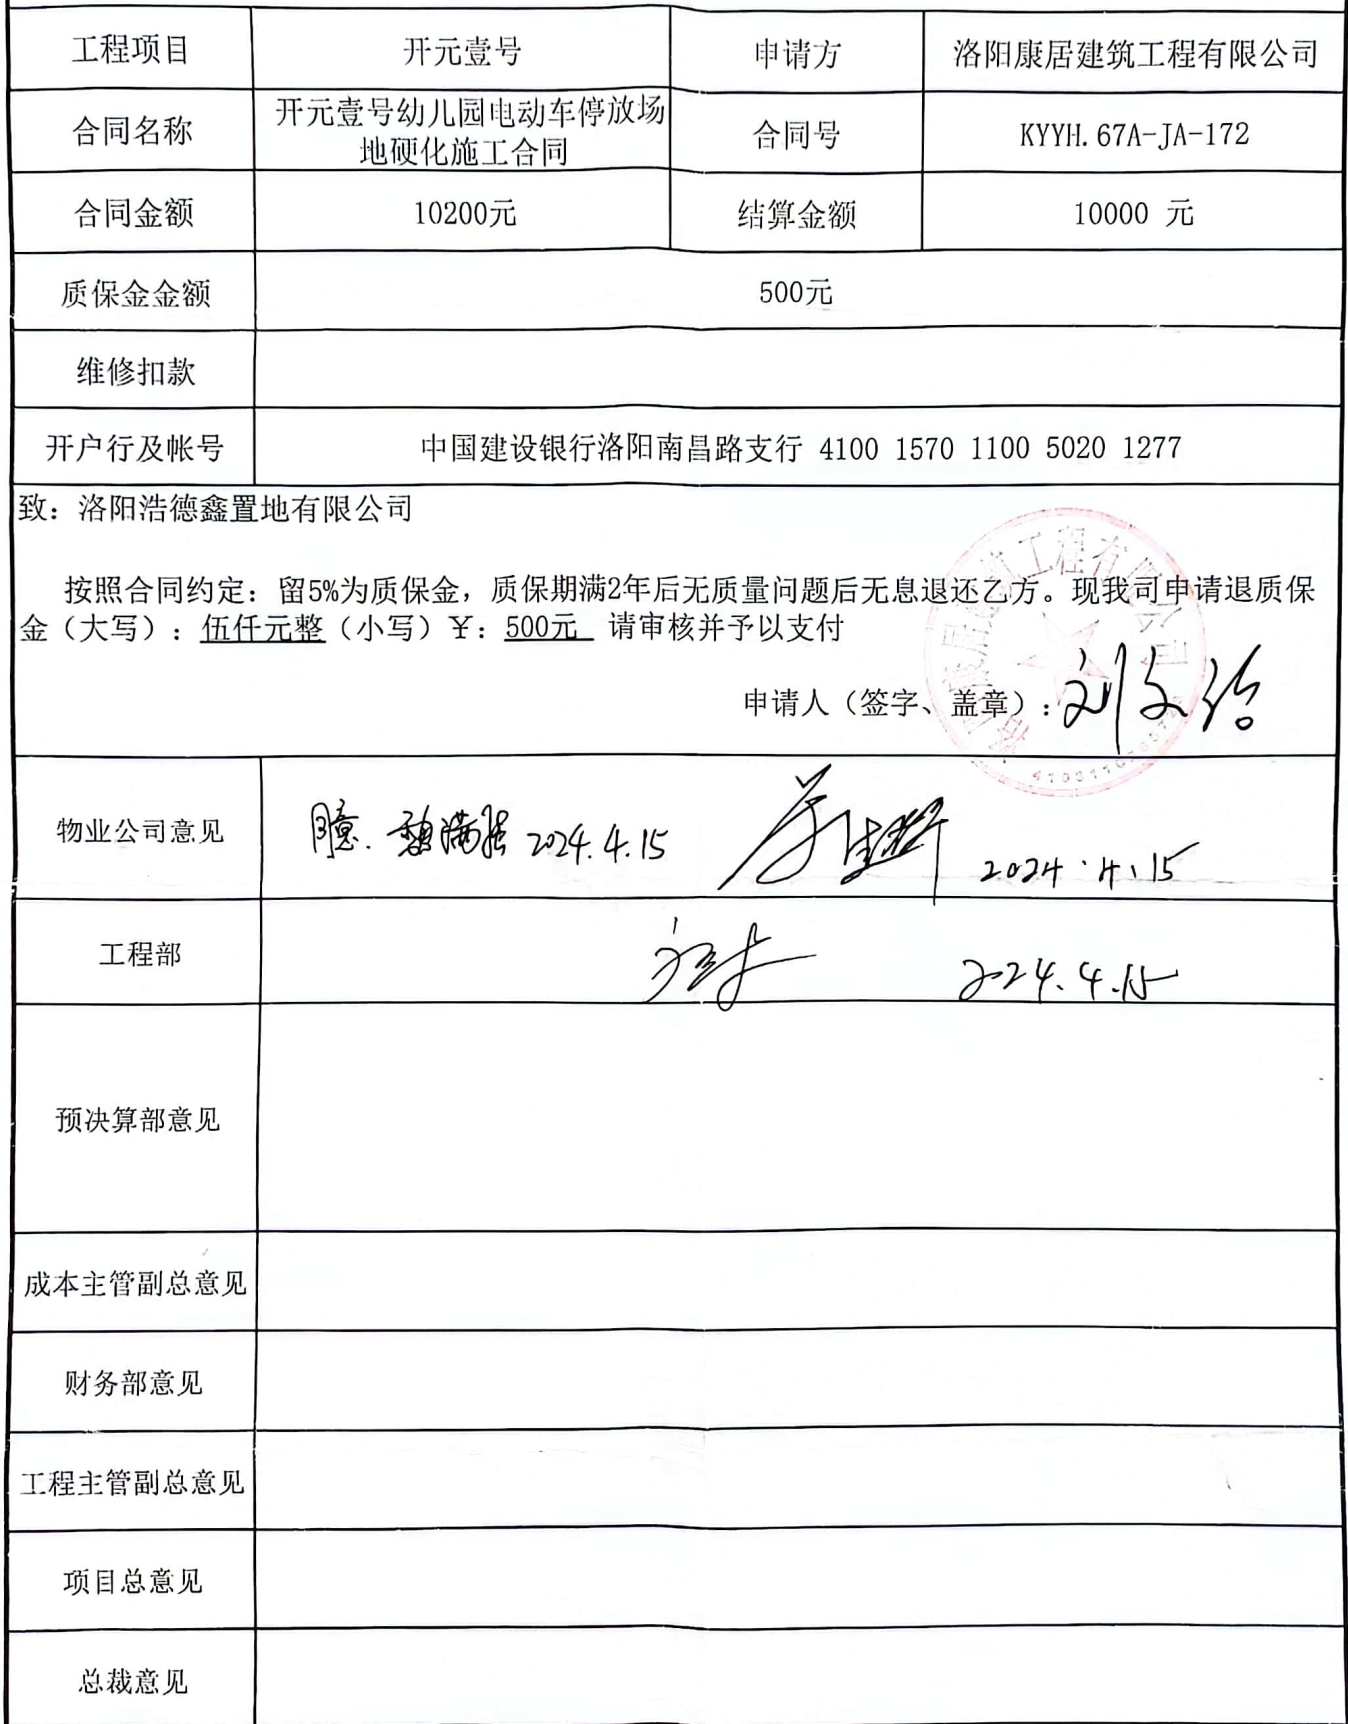 工程项目 开元壹号 申请方 洛阳康居建筑工程有限公司
合同名称 开元壹号幼儿园电动车停放场
地硬化施工合同 合同号 KYYH.67A-JA-172
合同金额 10200元 结算金额 10000 元
质保金金额 500元
维修扣款
开户行及帐号 中国建设银行洛阳南昌路支行 4100 1570 1100 5020 1277
致：洛阳浩德鑫置地有限公司
按照合同约定：留5%为质保金，质保期满2年后无质量问题后无息退还乙方。现我司申请退质保
金（大写）：伍仟元整（小写）￥：500元 请审核并予以支付
申请人（签字、盖章）：
物业公司意见 2024.4.15 2024.4.15
工程部 2024.4.15
预决算部意见
成本主管副总意见
财务部意见
工程主管副总意见
项目总意见
总裁意见